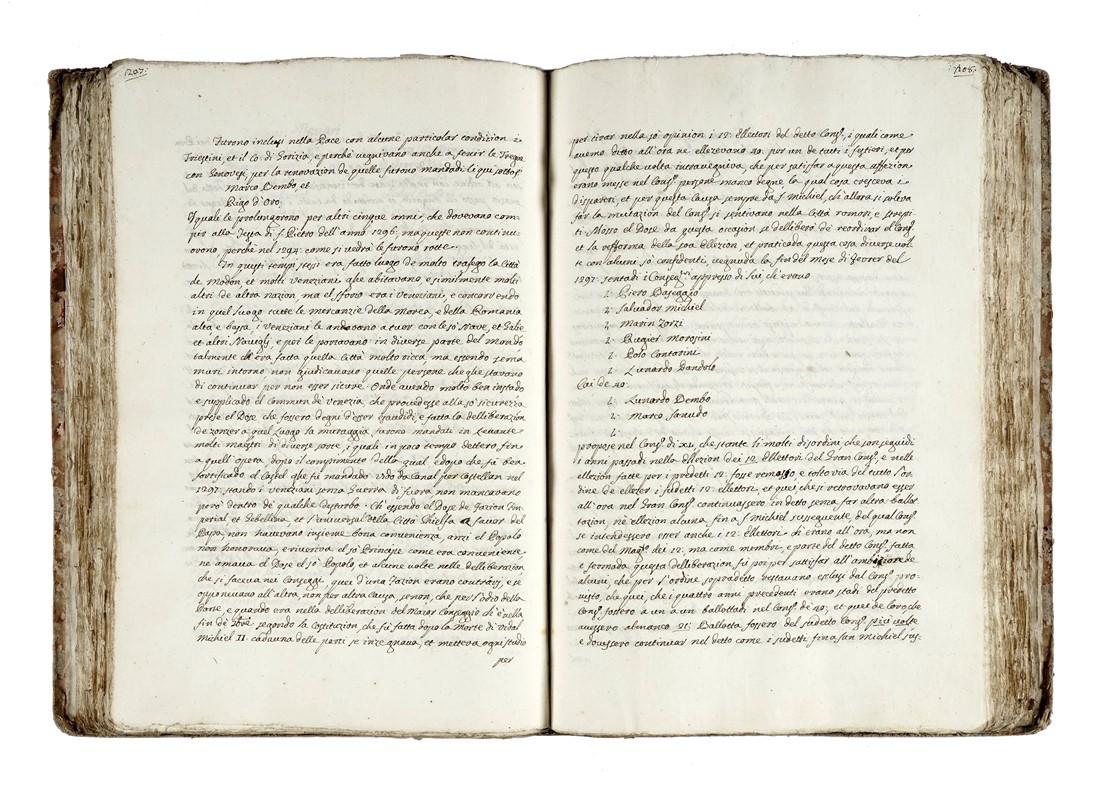 207:
Furono inclusi nella Pace con alcune particolar condizion i
Triestini, et il Co: di Gorizia, e perchè vegnivano anche a fenir le Tregue
con Genovesi, per la renovazion de quelle furono mandadi le qui sottosi
Marco Bembo, et
Rigo d'Oro,
I quali le prolongorono per altri cinque anni, che dovevano com-
pir alla Festa di S. Pietro dell'anno 1296, ma queste non continu-
ovono perchè nel 1294: come si vedrà le furono rotte.
In questi tempi stessi era fatto luogo de molto trafego la Città
de Modon, et molti Veneziani, che abitavano, e similmente molti
altri de altra nazion, ma el sforzo era i Veneziani, e concorrendo
in quel luogo tutte le mercanzie della Morea, e della Romania
alta e bassa, i Veneziani le andavano a tuor con le so Nave, et Galie
et altri Navigli, e poi le portavano in diverse parte del Mondo
talmente che era fatta quella Città molto ricca, ma essendo senza
muri intorno non giudicavano quelle persone che ghe stavano
di continuar per non esser sicure. Onde avendo molto ben instado
e supplicado il Commun de Venezia, che provedesse alla so sicurezza
prese el Dose che fossero degni d'esser esaudidi, e fatta la delliberazion
de zonzer a quel Luogo la muraggia, furono mandati in Levante
molti maestri di diverse sorte, i quali in poco tempo dettero fin
a quell'opera, dopo il compimento della qual, e dopo che fu ben
fortificado el Castel che fu mandado Vido da Canal per Castellan nel
1297: stando i Veneziani senza Guerra di fuora non mancavano
però dentro de qualche disturbo. Ch'essendo el Dose de fazion Im-
perial et Gebellina, et l'universal della Città Ghielfa a favor del
Papa, non havevano insieme bona convenienza, anzi el Popolo
non honorava, e riveriva el so Principe come era conveniente
ne amava el Dose el so Popolo, et alcune volte nelle delliberazion
che si faceva nei Conseggi, quei d'una fazion erano contrarj, e se
opponevano all'altra, non per altra causa, senon, che per l'odio della
Parte, e quando era nella delliberazion del Maior Conseggio ch'è nella
fin de segondo la Costituzion, che fu fatta dopo la Morte di Vidal
Michiel II. cadauna delle parti se inzegnava, et metteva ogni studio
per
208:
per tirar nella so opinion i 12: Ellettori del detto Cons:º, i quali come
avemo ditto all'ora ne ellezevano 40. per un de tutti i sestieri, et per
questo qualche volta intravegniva, che per satisfar a questa affezion
erano messe nel Cons:º persone manco degne la qual cosa cresceva i
despareri, et per questa causa sempre da S. Michiel, ch'allora si soleva
far la mutazion del Cons:º si sentivano nella Città romori, e strepi-
ti. Mosso el Dose da questa occasion se delliberò de reordinar el Cons:º
et la refforma della soa Ellezion, et praticada questa cosa diverse vol-
te con alcuni so confidenti, vegnuda la fin del Mese di Fevrer del
1297. sentadi i Conseg:ri appresso di Lui, ch'erano
2. Piero Baseggio
2. Salvador Michiel
2. Marin Zorzi
2. Rugier Morosini
2. Polo Contarini
2. Lunardo Dandolo
Cai de 40.
2. Lunardo Bembo
2. Marco Sanudo
2.
propose nel Cons:º di XL, che stante li molti disordini che son seguidi
i anni passadi nella Ellezion dei 12 Ellettori del Gran Cons:º, e nelle
ellezion fatte per i predetti 12: fosse remosso, e tolto via del tutto l'or-
dine de ellezer i sudetti 12: ellettori, et quei che si retrovavano esser
all'ora nel Gran Cons:º continuassero in detto senza far altra ballot-
tazion, nè ellezion alcuna, fin a S. Michiel susseguente, del qual Cons:º
se intendessero esser anche i 12: Ellettori ch'erano all'ora, ma non
come del Mag:º dei 12: ma come membri, e parte del detto Cons:º, fatta
e fermada questa delliberazion fu poi per sattisfar all'ambizione de
alcuni, che per l'ordine sopraditto restavano esclusi dal Cons:º pro-
visto, che quei, che i quattro anni precedenti erano stadi del predetto
Cons:º fossero a un a un ballottadi nel Cons:º de 40; et quei de loro che
avessero almanco 21: Ballotta fossero del sudetto Cons:º più volse
e dovessero continuar nel detto come i sudetti fin a San Michiel sus-